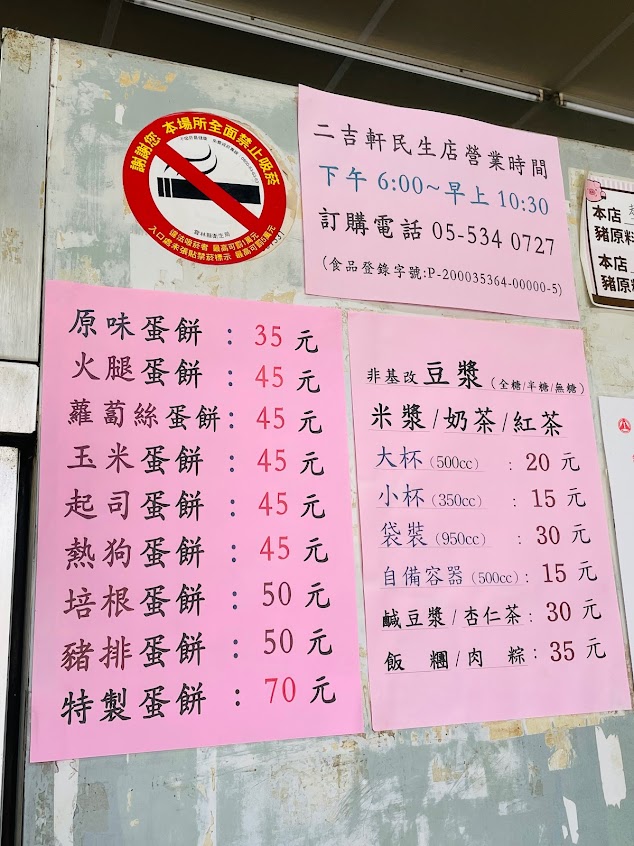 謝謝您 本場所全面禁止吸菸
雲林縣衛生局
違法吸菸者 最高可罰1萬元
入口處未張貼禁菸標示 最高可罰5萬元
二吉軒民生店營業時間
下午 6:00~早上 10:30
訂購電話 05-534 0727
(食品登錄字號:P-200035364-00000-5)
本店
豬原料
本店
豬原料
原味蛋餅 : 35 元
火腿蛋餅 : 45 元
蘿蔔絲蛋餅: 45 元
玉米蛋餅 : 45 元
起司蛋餅 : 45 元
熱狗蛋餅 : 45 元
培根蛋餅 : 50 元
豬排蛋餅 : 50 元
特製蛋餅 : 70 元
非基改豆漿(全糖/半糖/無糖)
米漿/奶茶/紅茶
大杯(500cc) : 20 元
小杯(350cc) : 15 元
袋裝(950cc) : 30 元
自備容器(500cc): 15 元
鹹豆漿/杏仁茶: 30 元
飯 糰/肉 粽: 35 元